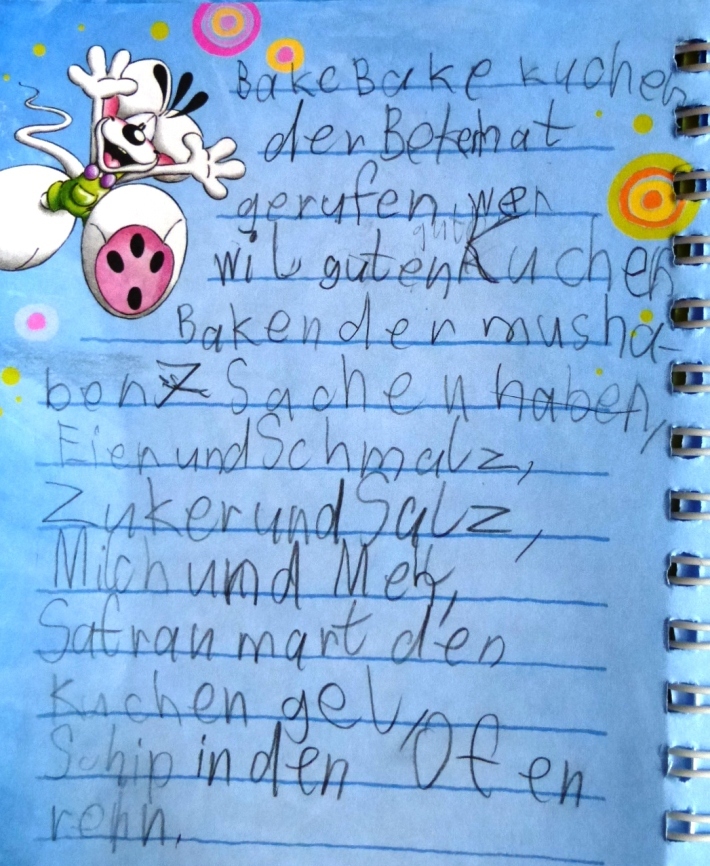 Bake Bake kuchen
der Beterhat
gerufen, wer
wil guten Kuchen
Baken der musha-
ben 7 Sachen haben,
Eierund Schmalz,
Zukerund Salz,
Milchund Mehl,
Safran mart den
kuchen gel,
Schip in den Ofen
rehn.